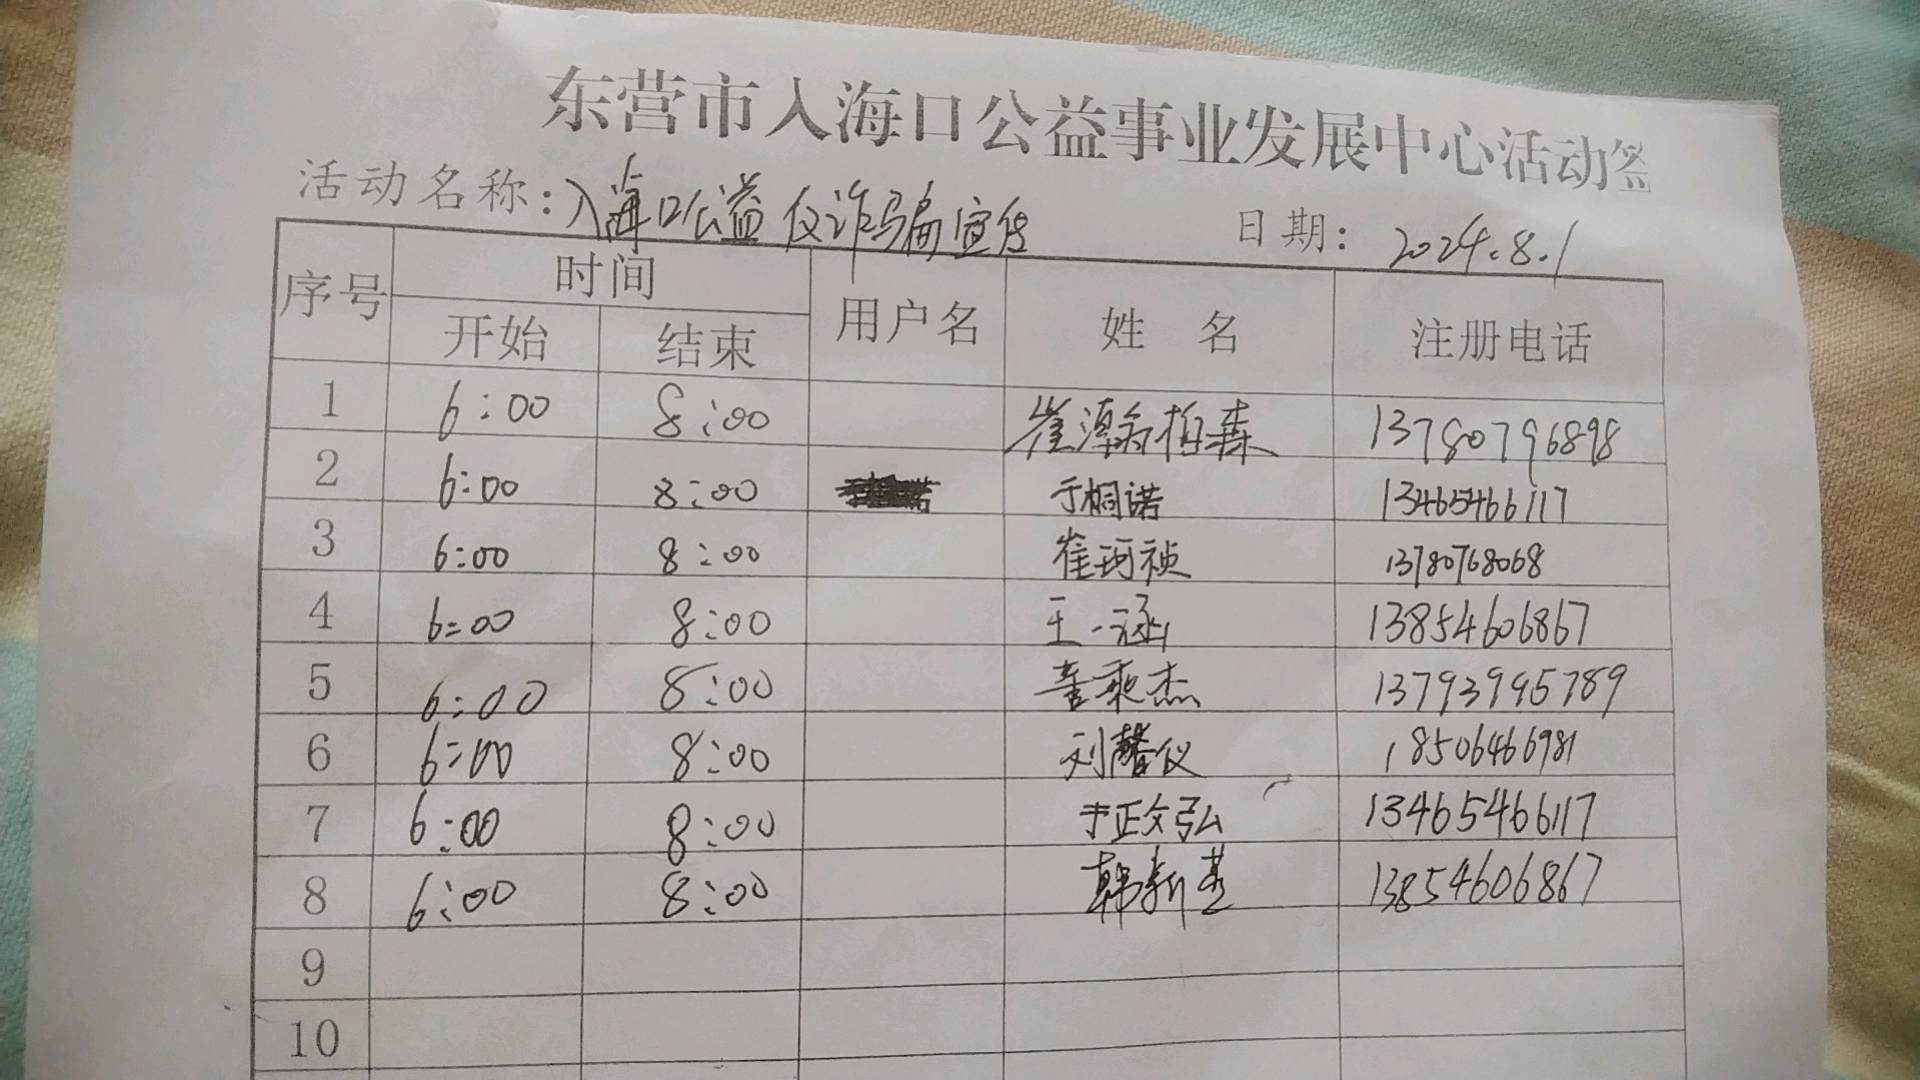 东营市入海口公益事业发展中心活动签
活动名称：入海口公益反诈骗宣传 日期：2024.8.1
序号 时间 用户名 姓 名 注册电话
开始 结束
1 6:00 8:00 崔漳翰柏森 13780796898
2 6:00 8:00 于桐诺 13465466117
3 6:00 8:00 崔珂祯 13780768068
4 6:00 8:00 王一涵 13854606867
5 6:00 8:00 董乘杰 13793995789
6 6:00 8:00 刘馨仪 18506466981
7 6:00 8:00 于正文弘 13465466117
8 6:00 8:00 韩新 13854606867
9
10